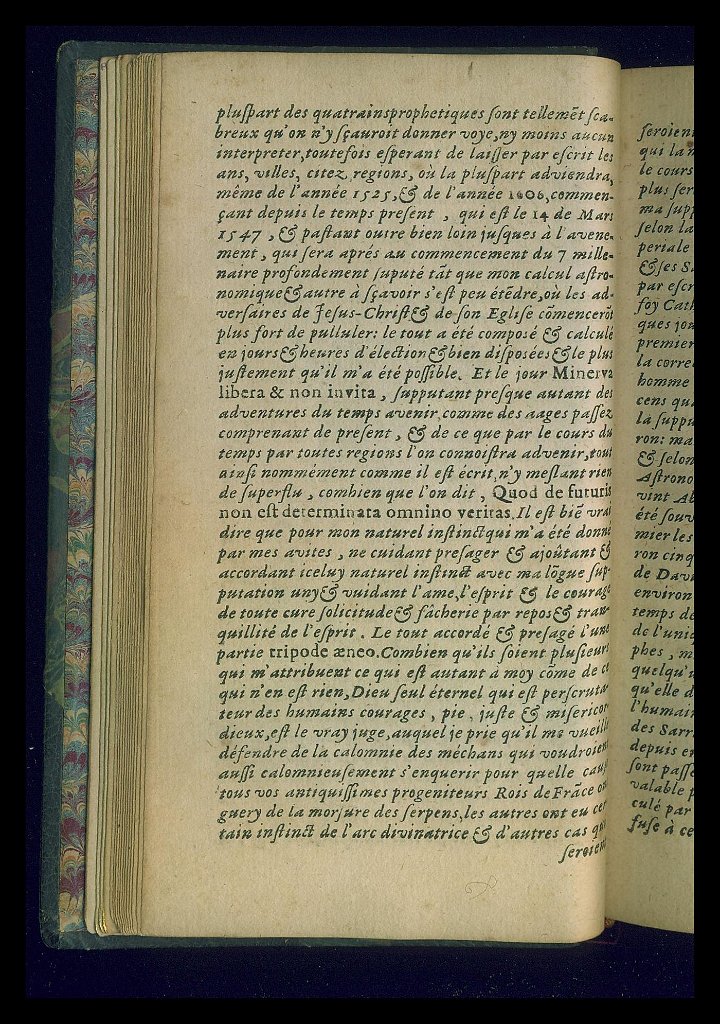 pluſpart des quatrainsprophetiques ſont tellemẽt ſca-
breux qu'on n'y ſçauroit donner voye,ny moins aucun
interpreter,toutefois eſperant de laiſſer par eſcrit les
ans, villes, citez, regions, où la pluſpart adviendra,
même de l'année 1525,& de l'année 1606,commen-
çant depuis le temps preſent , qui eſt le 14 de Mars
1547 ,& paſſant outre bien loin juſques à l'avene-
ment , qui ſera aprés au commencement du 7 mille-
naire profondement ſuputé tãt que mon calcul aſtro-
nomique&autre à ſçavoir s'eſt peu étẽdre,où les ad-
verſaires de Jeſus-Chriſt& de ſon Egliſe cõmencerõt
plus fort de pulluler: le tout a été compoſé & calculé
en jours&heures d'élection&bien diſpoſées&le plus
juſtement qu'il m'a été poſſible. Et le jour Minerva
libera & non invita, ſupputant preſque autant des
adventures du temps avenir,comme des aages paſſez
comprenant de preſent , & de ce que par le cours du
temps par toutes regions l'on connoiſtra advenir,tout
ainſi nommément comme il eſt écrit,n'y meſlant rien
de ſuperflu , combien que l'on dit , Quod de futuris
non eſt determinata omnino veritas.Il eſt biẽ vrai
dire que pour mon naturel inſtinct qui m'a été donné
par mes avites , ne cuidant preſager & ajoûtant &
accordant iceluy naturel inſtinct avec ma lõgue ſup-
putation uny& vuidant l'ame,l'eſprit & le courage
de toute cure ſolicitude& fâcherie par repos& tran-
quillité de l'eſprit . Le tout accordé & preſagé l'une
partie tripode æneo.Combien qu'ils ſoient pluſieurs
qui m'attribuent ce qui eſt autant à moy cõme de ce
qui n'en eſt rien,Dieu ſeul éternel qui eſt perſcruta-
teur des humains courages, pie, juſte & miſericor-
dieux,eſt le vray juge,auquel je prie qu'il me vueille
défendre de la calomnie des méchans qui voudroient
auſſi calomnieuſement s'enquerir pour quelle cauſe
tous vos antiquiſſimes progeniteurs Rois de Frãce on
guery de la morſure des ſerpens,les autres ont eu cer
tain inſtinct de l'arc divinatrice & d'autres cas qui
ſeroient
ſeroient
qui la
le cours
plus ſer
ma ſupp
ſelon la
periale
&ſes S
par eſcr
foy Cath
ques jou
premier
la corre
homme
cens qu
la ſuppu
ron: ma
& ſelon
Aſtrono
vint Ab
été ſouv
mier les
ron cinq
de Davi
environ
temps de
de l'unic
phes , m
quelqu'u
qu'elle d
l'humain
des Sarr
depuis en
ſont paſſe
valable p
culé par
fuſe à ce